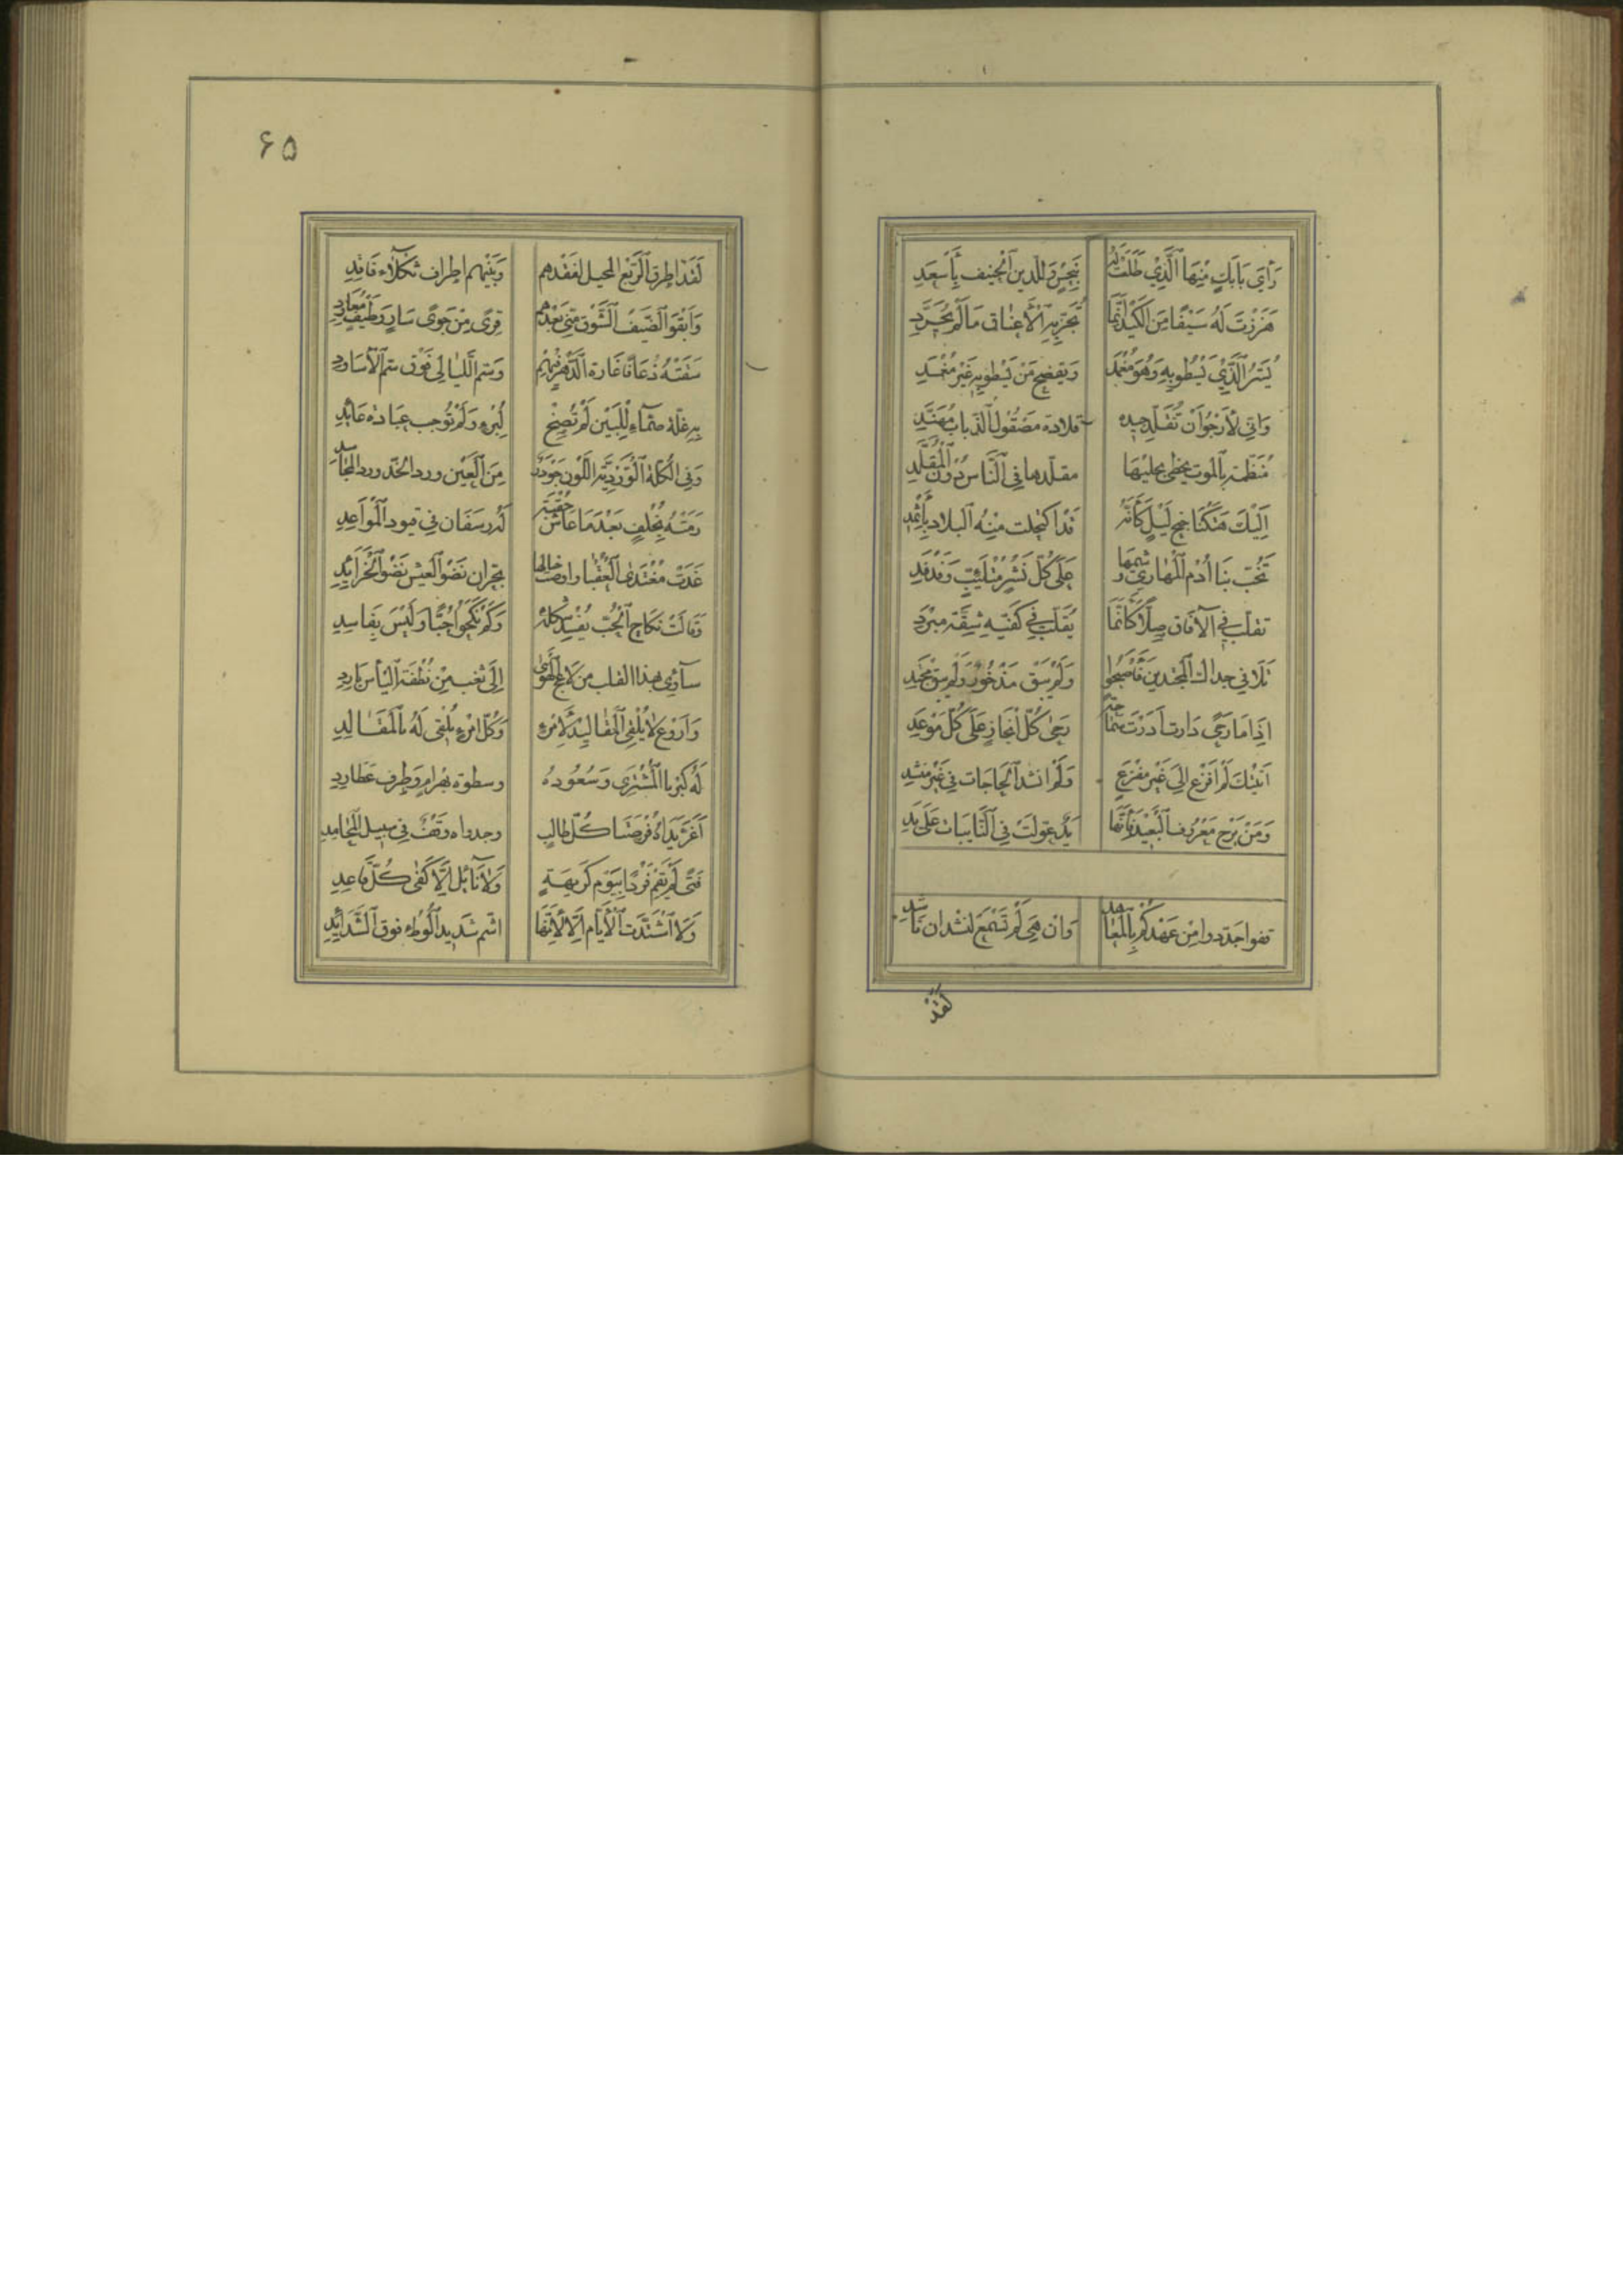 رَأى بَابَكٍ مِنْهَا الَّذِيْ طَلَعَتْ لَهُ بِنَحْسٍ وَلِلدين الْحَنِيف بِأَسْعَدِ
هَزَزْتَ لَهُ سَيْفًا مِنَ الْكَيْدِ اِنَّمَا تُجَزُّ بِهِ الْأَعْنَاق مَا لَمْ يُجَرَّدِ
يُسَرُّ الَّذِيْ يَسْطُو بِهِ وَهُوَ مُغْمَدٌ وَيفضح مَنْ يَسْطُو بِهِ غَيْرَ مُغْمَدِ
وَاِنِّي لَأَرْجُو اَنْ تُقَلِّدَ جِيده قلادة مَصْقُولِ الذُّبَابِ مُهَنَّدِ
مُنَظَّمَة بِالْمَوْتِ يحظى بِحليهَا مقلّدها فِي النَّاس دُوْنَ الْمُقَلَّدِ
اِلَيْكَ هَتَكْنَا جنح لَيْلٍ كَأَنَّهُ قَدْ اكتحلت مِنْهُ الْبلاد بِاِثْمِدِ
تَخُبُّ بِنَا اُدْم الْمَهَارِي وَشيمهَا عَلَى كُلّ نَشْزٍ مُتْلَئِبٍّ وَفَدْفَدِ
تقلّب فِي الْآفَاق صِلًّا كَأَنَّمَا يُقَلِّب فِي كَفَّيْهِ شِقَّة مِبْرَدِ
تَلَافى جداك الْمُجْتَدين فَأَصْبَحُوا وَلَمْ يبق مَذْخُورٌ وَلَمْ يبق مُجْتَدِ
اِذَا مَا رَحًى دَارت اَدَرْتَ سَمَاحَةً رَحَى كُلّ اِنْجَازٍ عَلَى كُلّ مَوْعِدِ
اَتَيْتُكَ لَمْ اَفْزَع اِلَى غَيْرِ مَفْزَعٍ وَلَمْ انشد الْحَاجَات فِي غَيْرِ منشدِ
وَمَنْ يَرْجُ مَعْرُوفَ الْبَعِيْدِ فَاِنَّمَا يَدِي عوّلتْ فِي النَّائبَات عَلَى يَدِ
قفوا جَدّدوا مِن عَهْدكُمْ بِالْمَعَاهِدِ وَاِنْ هِيَ لَمْ تَسْمَع لنشدان نَاشِدِ
لَقَدْ
۶۵
لَقَدْ اطرق الرَّبْعُ المحيل لفَقْدهم وَبَيْنِهِم اطراف ثَكْلَاء فَاقِدِ
وَاَبْقَوْا لِضَيْفِ الشَّوْق مِنِّي بَعْدَهُم قِرًى مِنْ جَوًى سَارٍ وَطَيْفٍ مُعَاوِدِ
سَقَتْهُ ذُعَافًا غَارة الدَّهْرِ فِيْهِمِ وَسمّ اللَّيَالِي فَوْق سمّ الْأَسَاوِدِ
بِهِ عِلَّة صمّاء لِلْبَيْن لَمْ تُصِخْ لِبُرْءٍ وَلَمْ تُوجب عِيَادة عَائِدِ
وَفِي الْكِلَّة الْوَرْدِيَّة اللَّوْن جُؤذَرٌ مِنَ الْعِيْنِ ورد الخدّ ورد الْمَجَاسدِ
رَمَتْهُ بِخُلْفٍ بَعْدَ مَا عَاشَ حِقْبَةً لَهُ رسَفَان فِي قيود الْمَوَاعِدِ
غَدَتْ مُغْتَدى الْغَضْبَى وَاوصت خيالها بِحِرّان نِضْوِ الْعِيْسِ نِضْوِ الْخَرَائِدِ
وَقَالَتْ نكَاح الْحُبّ يُفْسِدُ شكْلَهُ وَكَمْ نَكَحُوا حُبًّا وَلَيْسَ بِفَاسِدِ
سآوِي بهذا القلب من لَاعِجِ الْهَوَى اِلَى ثغب مِنْ نُطْفَة الْيَأْس بَارِدِ
وَاَرْوَع لَا يُلْقِي الْمَقَالِيْدَ لِامْرِءٍ وَكُلّ امْرِءٍ يُلْقِي لَهُ بِالْمَقَالِدِ
لَهُ كِبْرِيَا الْمُشْتَرِي وَسُعُودهُ وسطوة بَهْرَامٍ وَظرف عُطَارِدِ
اَغَرُّ يَدَاهُ فُرْصَتَا كُلّ طَالِبٍ وجدواه وَقْفٌ فِي سَبِيل الْمَحَامِدِ
فَتًى لَمْ يَقُمْ فَرْدًا بِيَوْمِ كَرِيهَةٍ وَلَا نَائل اِلَّا كَفَى كُلّ قَاعِدِ
وَلَا اشْتَدَّت الْأَيَّام اِلَّا اَلَانَهَا اَشَمّ شَدِيد الْوطْءِ فوق الشَّدَائِدِ